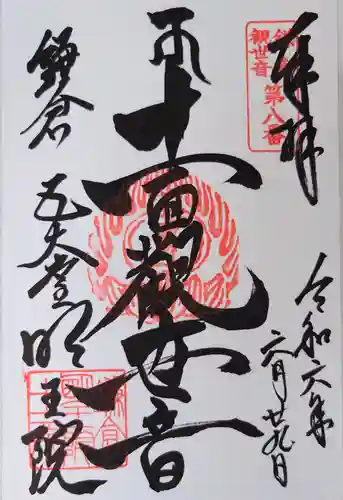 奉拝
鎌倉
観世音
第八番
令和六年
六月廿九日
十一面観世音
鎌倉
五大堂明
王院